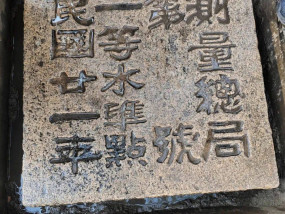 測量總局
第 號
一等水準點
民國廿一年